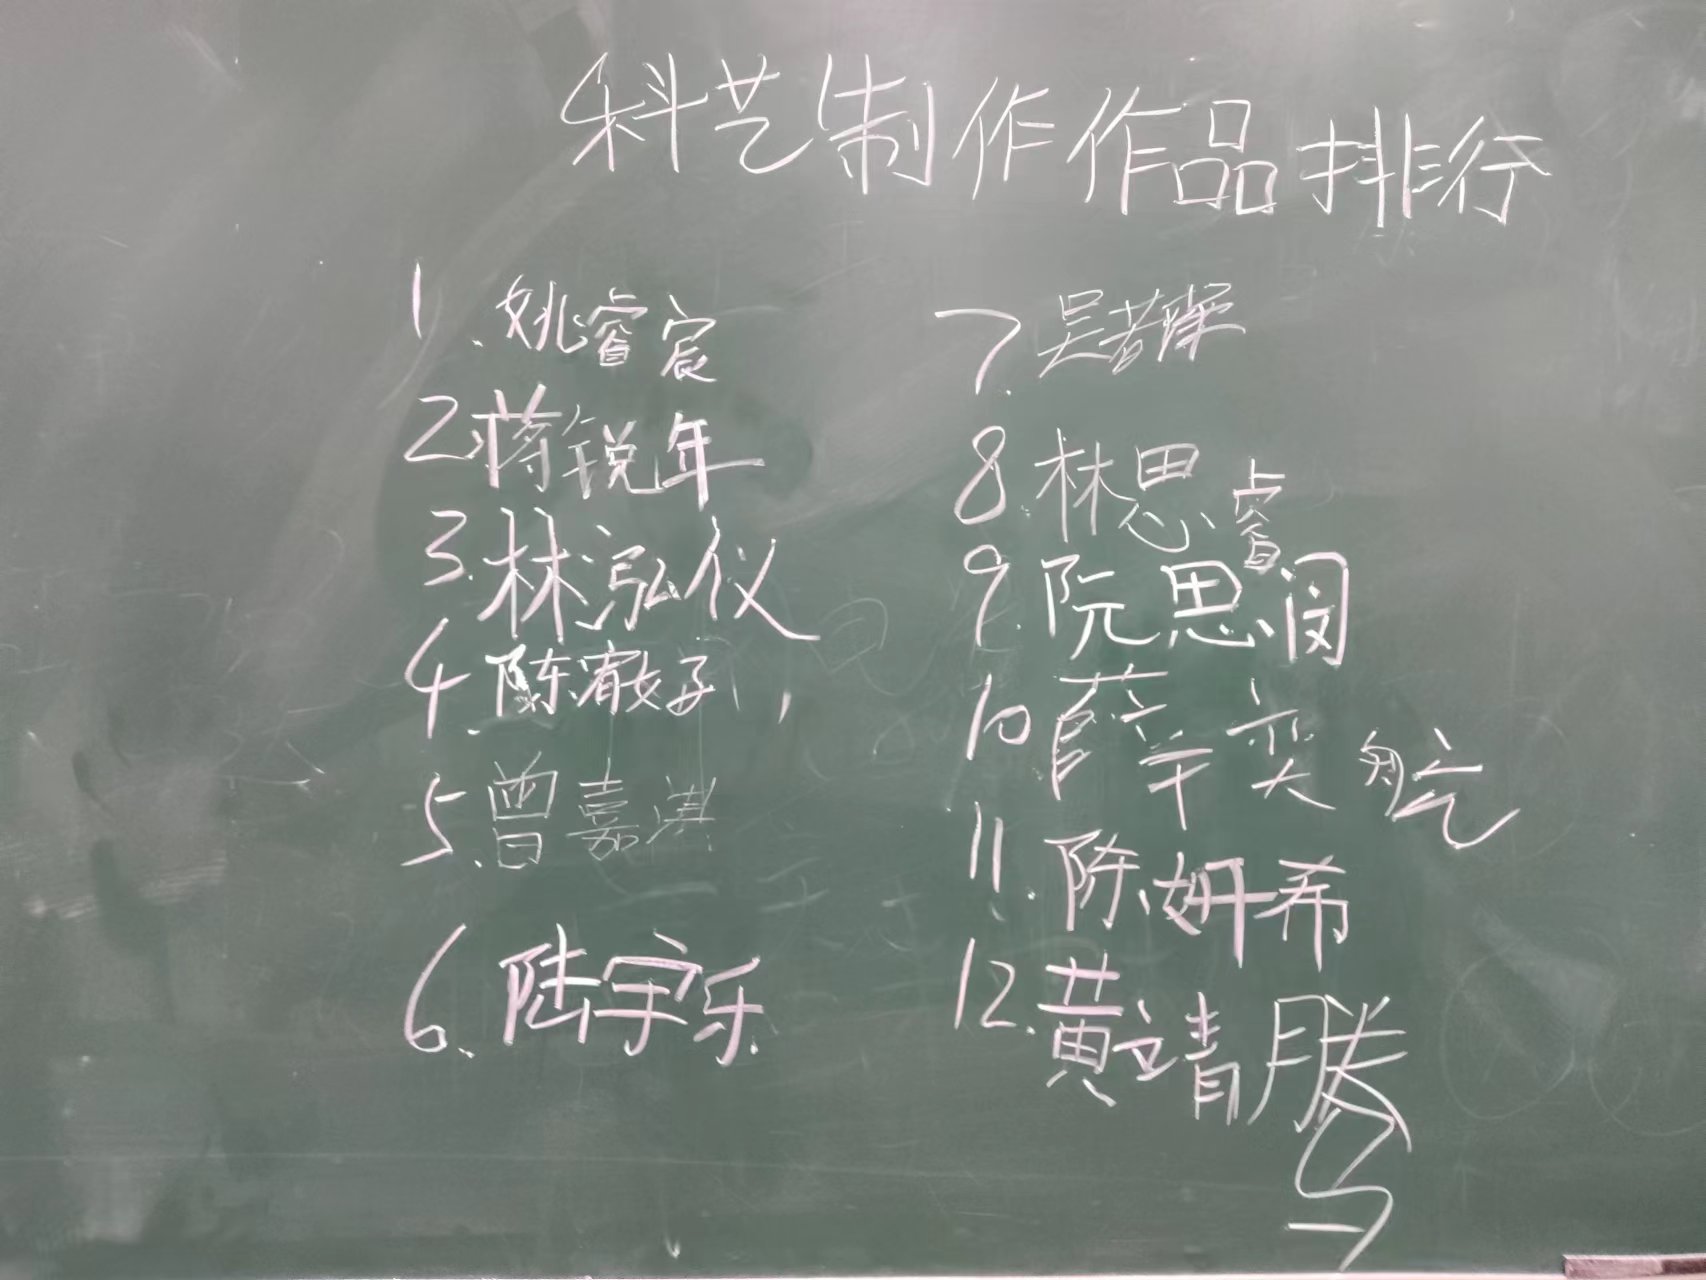 科艺制作作品排行
1.姚睿宸
2.蒋锐年
3.林泓仪
4.陈宥妤
5.曾嘉淇
6.陆宇乐
7.吴若
8.林思睿
9.阮思闵
10薛奕航
11.陈妍希
12.黄靖腾